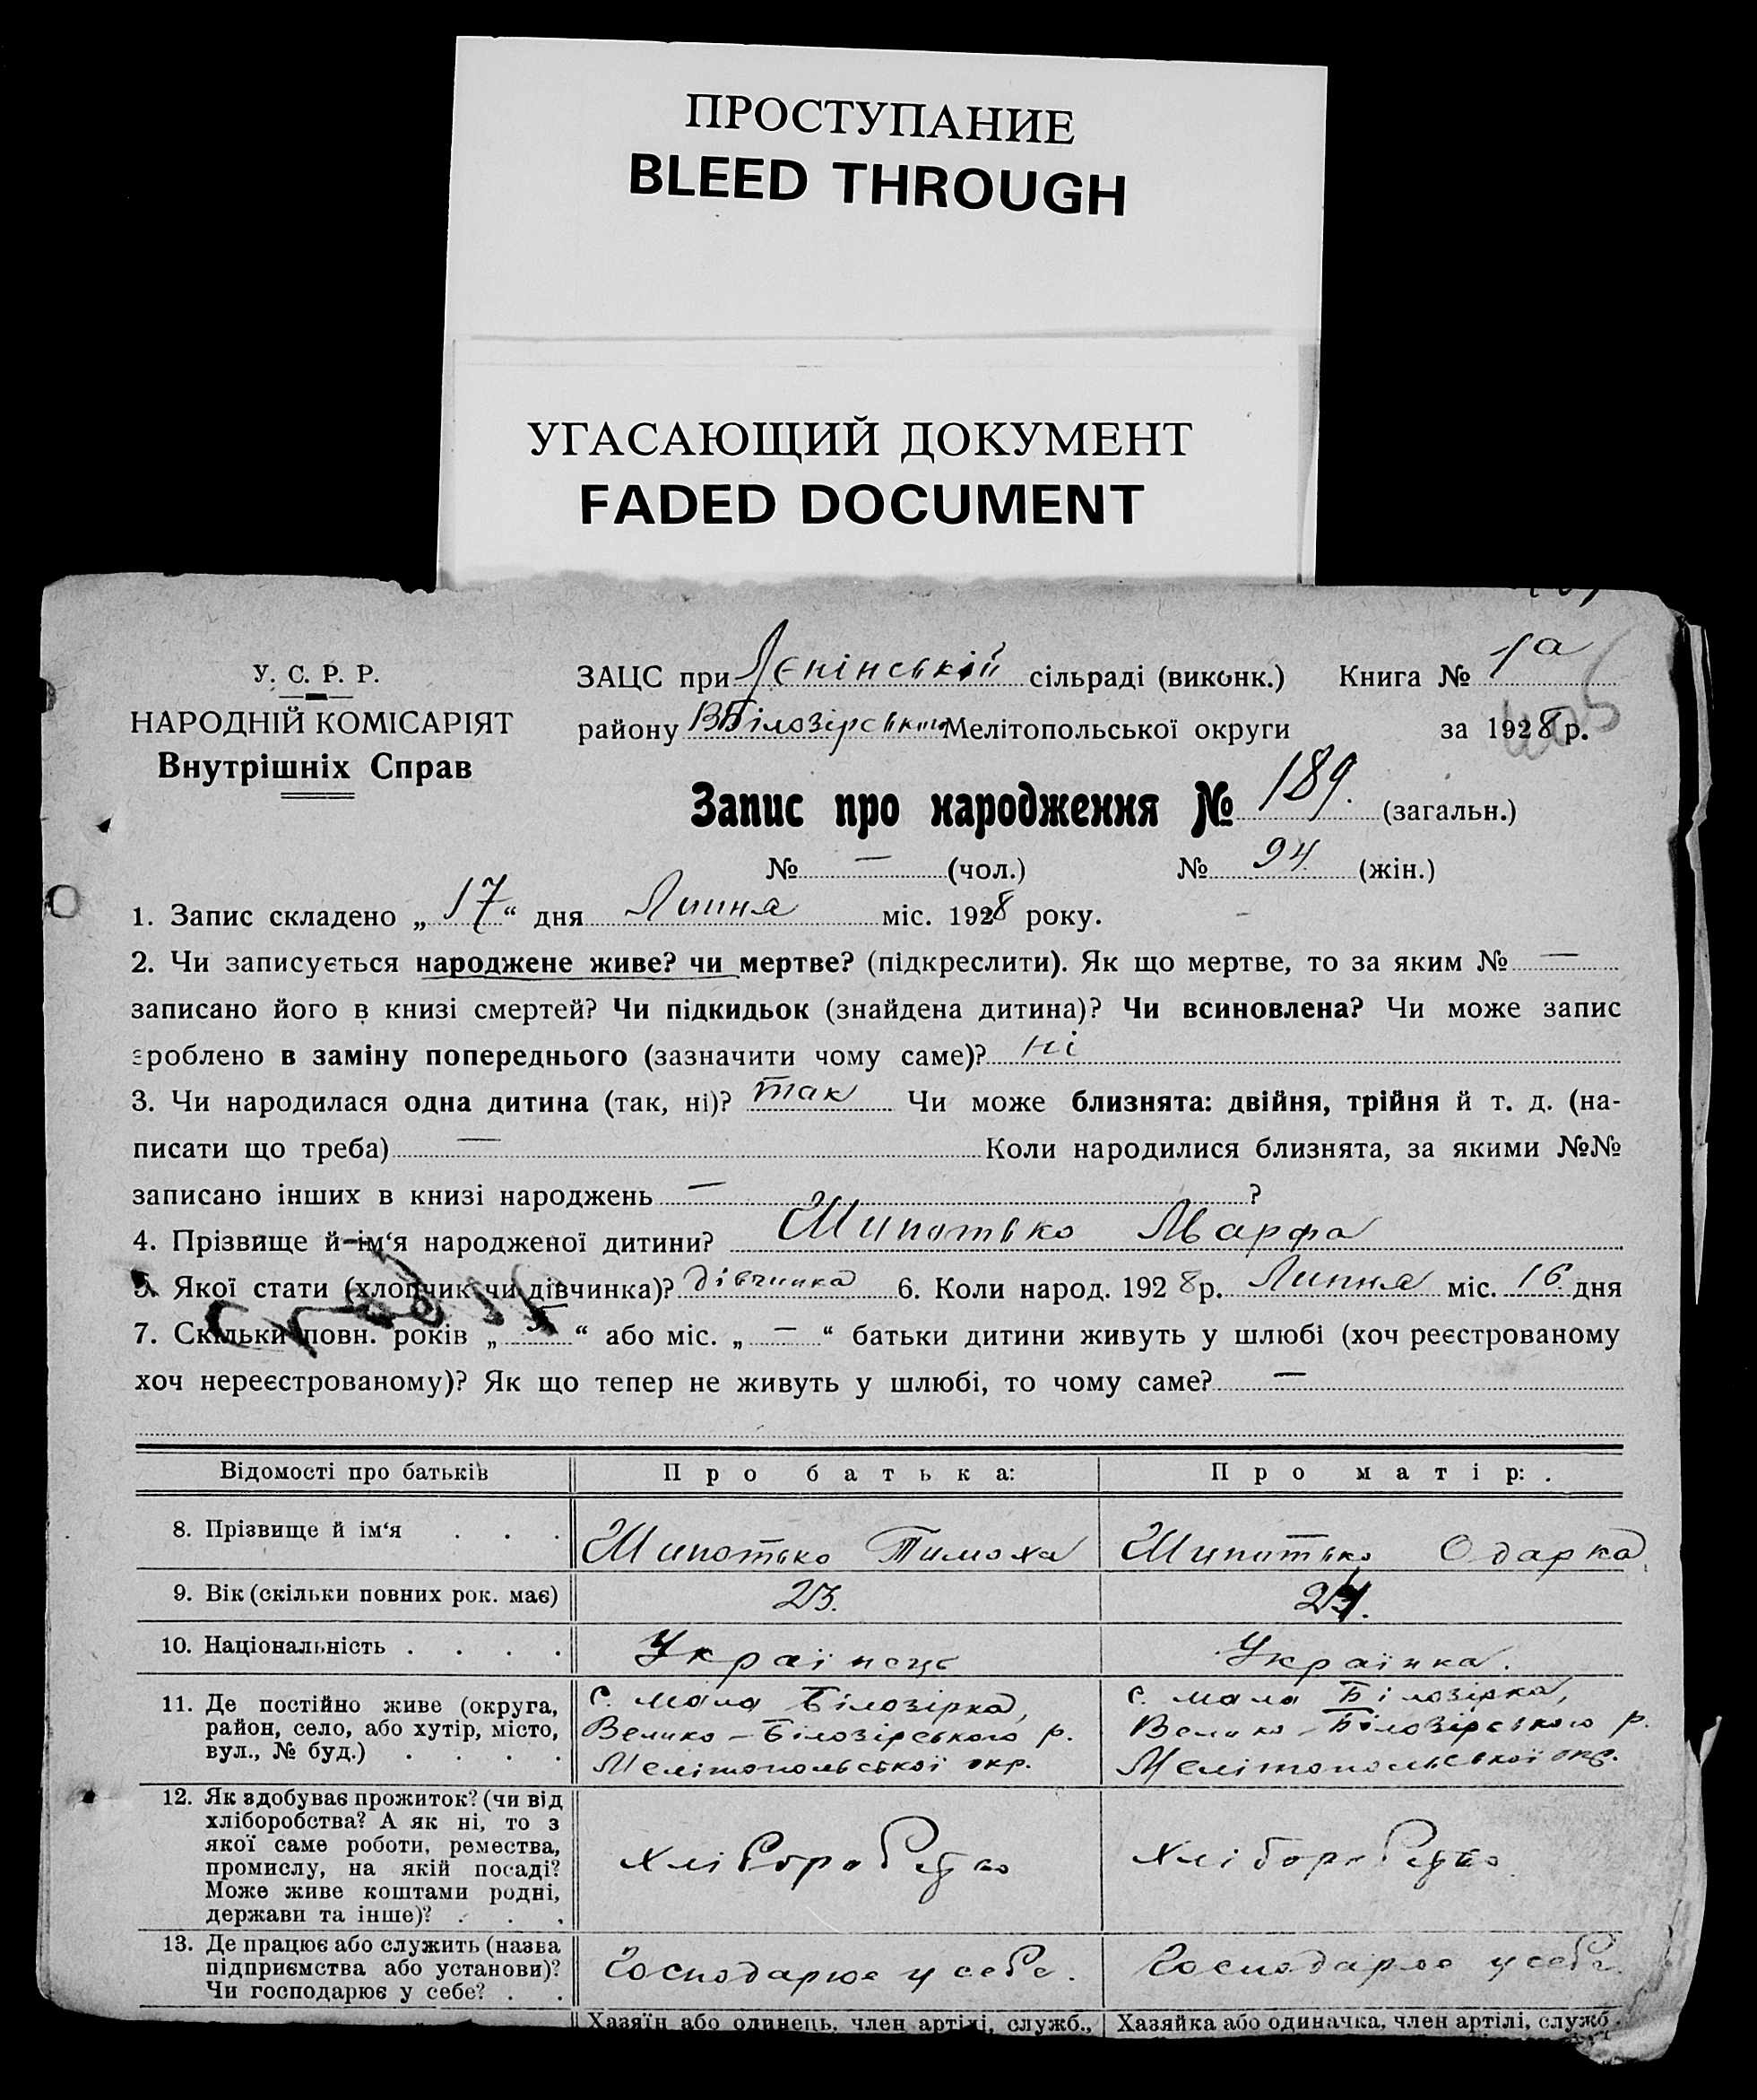 ПРОСТУПАНИЕ
BLEED THROUGH
УГАСАЮЩИЙ ДОКУМЕНТ
FADED DOCUMENT
У. С. Р. Р.
НАРОДНІЙ КОМІСАРІЯТ
Внутрішніх Справ
ЗАЦС при Ленінській сільраді (виконк.) Книга № 1а
району ВБілозірськ Мелітопольської округи за 1928 р.
Запис про народження № 189. (загальн.)
№ — (чол.) № 94. (жін.)
1. Запис складено „17“ дня Липня міс. 1928 року.
2. Чи записується народжене живе? чи мертве? (підкреслити). Як що мертве, то за яким № —
записано його в книзі смертей? Чи підкидьок (знайдена дитина)? Чи всиновлена? Чи може запис
зроблено в заміну попереднього (зазначити чому саме)? ні
3. Чи народилася одна дитина (так, ні)? так Чи може близнята: двійня, трійня й т. д. (на-
писати що треба) — Коли народилися близнята, за якими №№
записано інших в книзі народжень — ?
4. Прізвище й ім‘я народженої дитини? Шипотько Марфа
5. Якої стати (хлопчик чи дівчинка)? дівчинка 6. Коли народ. 1928 р. Липня міс. 16. дня
7. Скільки повн. років „ “ або міс. „ — “ батьки дитини живуть у шлюбі (хоч реєстрованому
хоч нереєстрованому)? Як що тепер не живуть у шлюбі, то чому саме? —
Відомості про батьків
Про батька:
Про матір:
8. Прізвище й ім‘я . . .
Шипотько Тимоха
Шипотько Одарка
9. Вік (скільки повних рок. має)
23.
10. Національність . . . .
Украінець
Українка.
11. Де постійно живе (округа,
район, село, або хутір, місто,
вул., № буд.) . . . .
с. Мала Білозірка,
Велико-Білозірського р.
Мелітопольської окр.
с. Мала Білозірка,
Велико-Білозірського р.
Мелітопольської окр.
12. Як здобуває прожиток? (чи від
хліборобства? А як ні, то з
якої саме роботи, ремества,
промислу, на якій посаді?
Може живе коштами родні,
держави та інше)? . . .
Хліборобство
Хліборобство
13. Де працює або служить (назва
підприємства або установи)?
Чи господарює у себе? . .
Господарює у себе.
Господарює у себе.
Хазяїн або одинець, член артілі, служб.,
Хазяйка або одиначка, член артілі, служб.